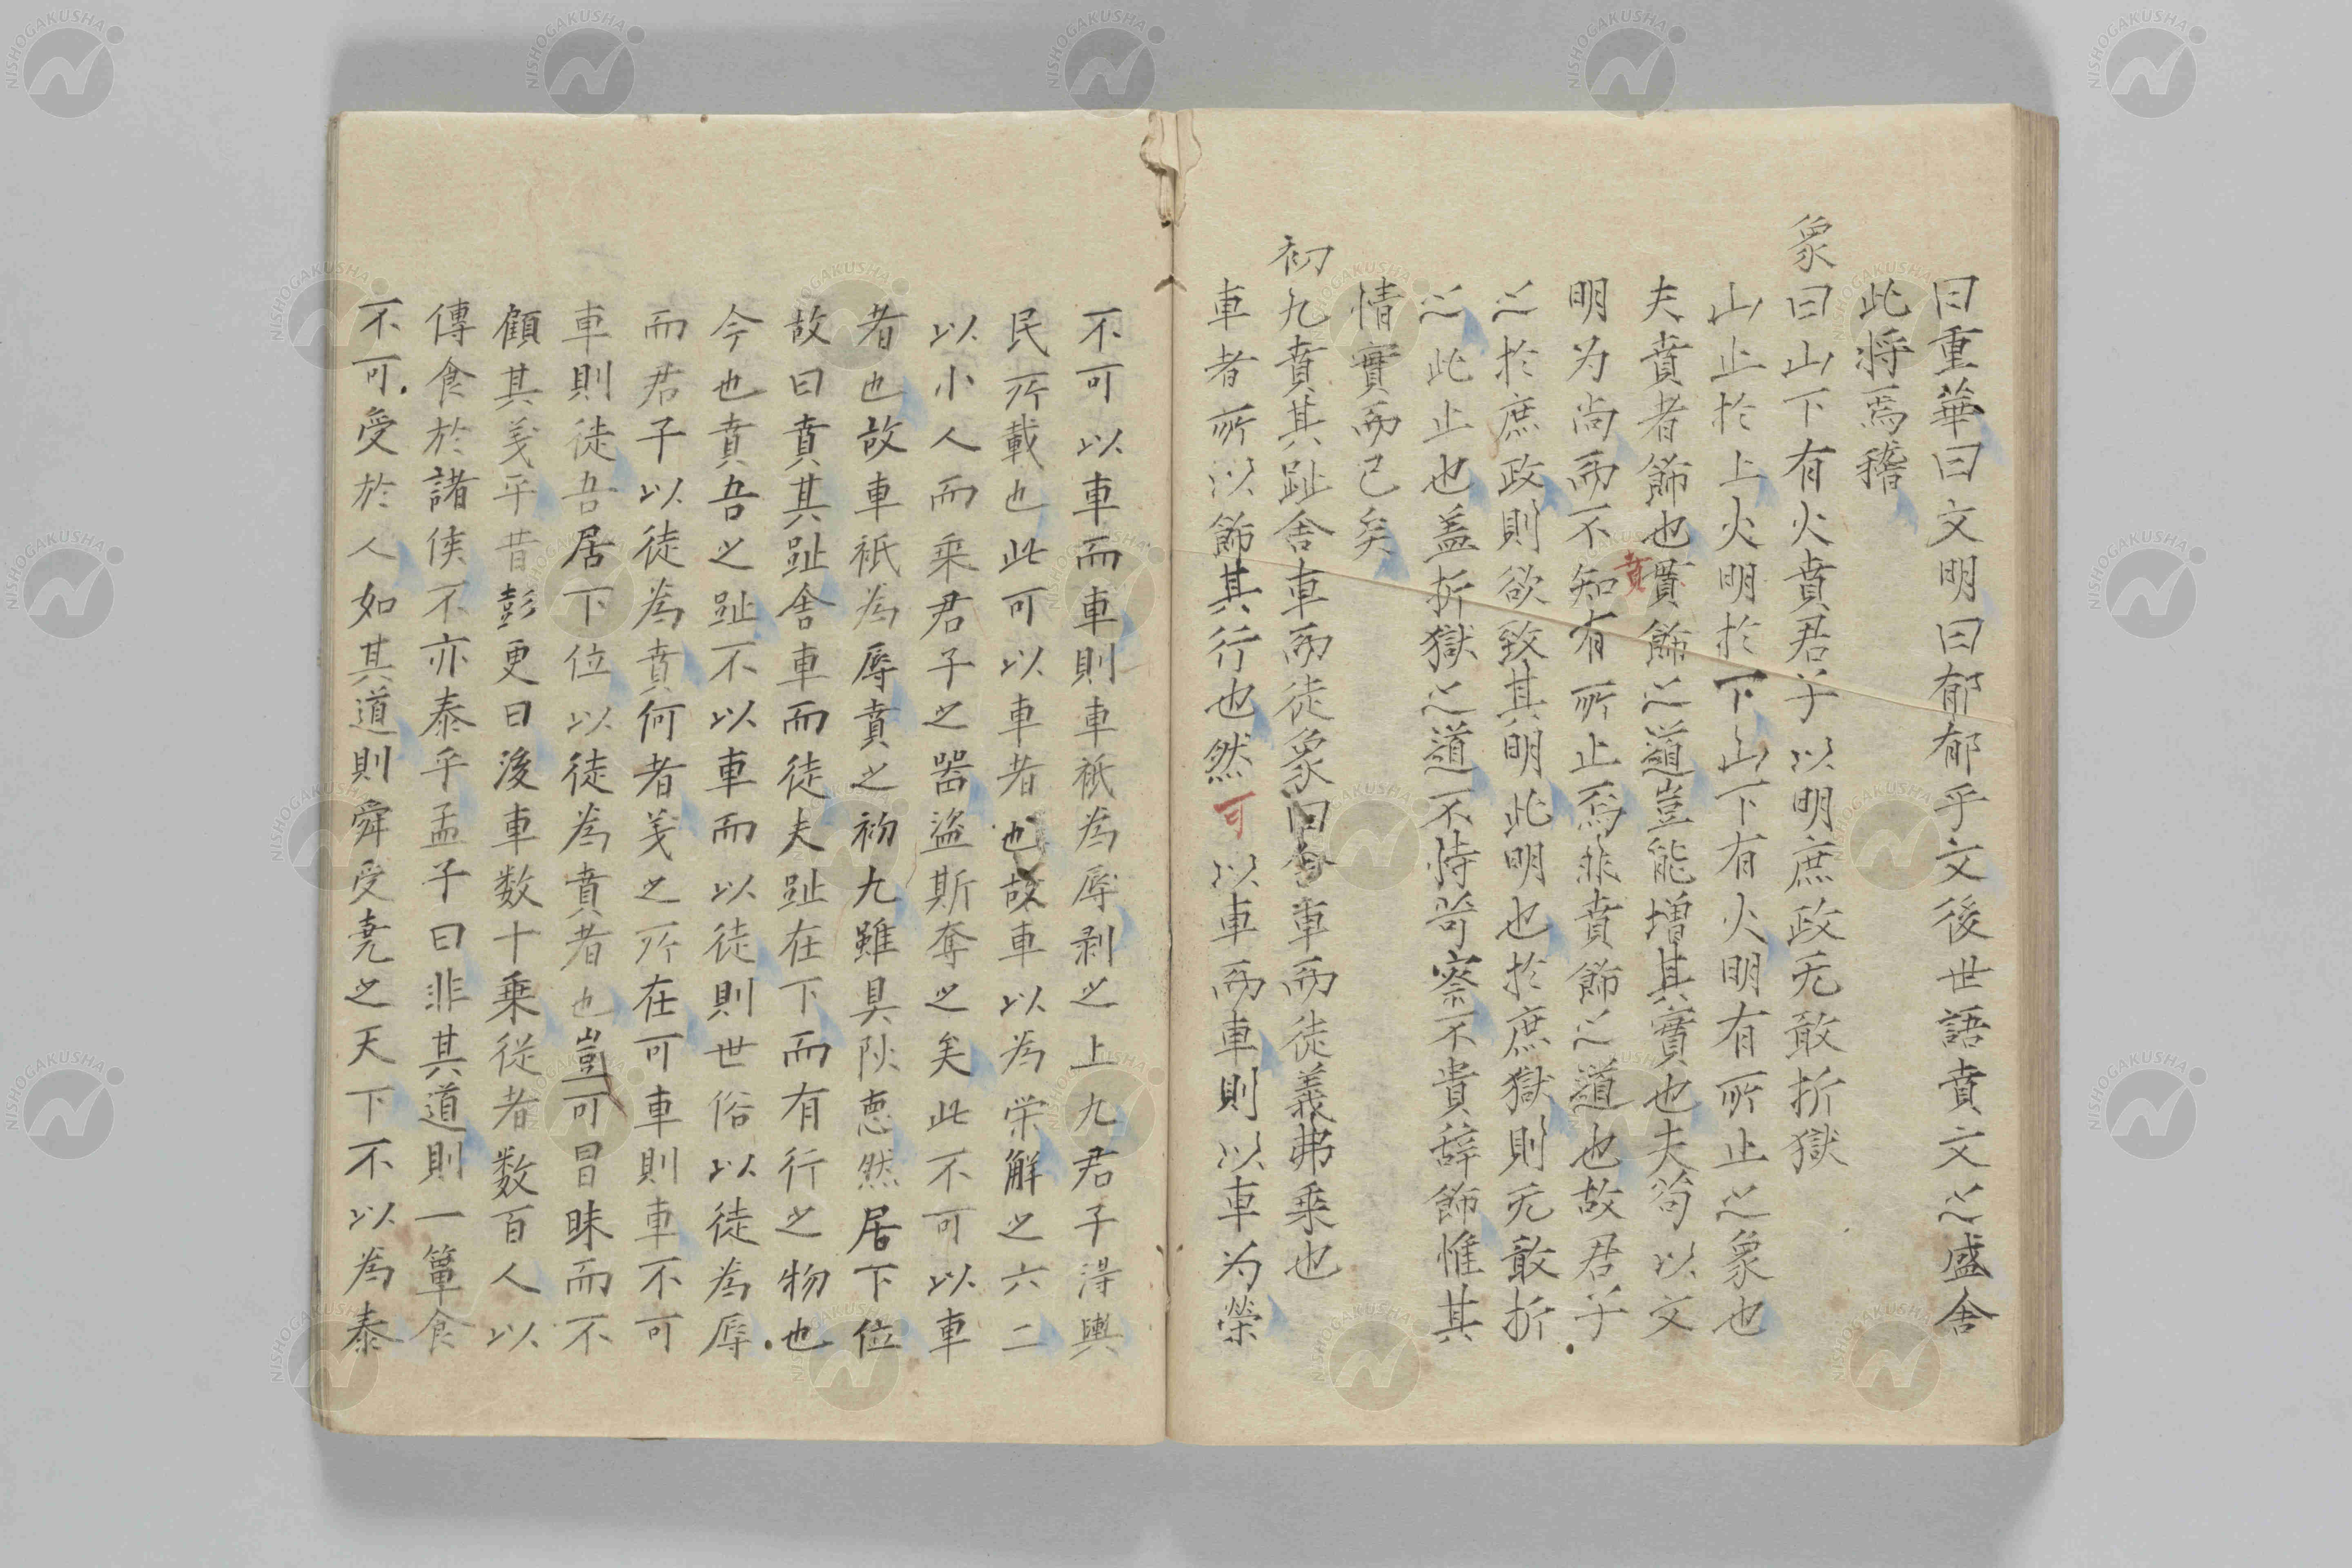 曰重華曰文明曰郁郁乎文後世語賁文之盛舍
此将焉稽
象曰山下有火賁君子以明庶政无敢折獄
山止於上火明於下山下有火明有所止之象也
夫賁者飾也賁飾之道豈能増其實也夫苟以文
明为尚而不知有所止焉非賁飾之道也故君子
之於庶政則欲致其明此明也於庶獄則无敢折
之此止也盖折獄之道不恃苛察不貴辞飾惟其
情實而已矣
初九賁其趾舎車而徒象曰舎車而徒義弗乗也
車者所以飾其行也然可以車而車則以車为榮
不可以車而車則車祇為辱剥之上九君子淂輿
民所載也此可以車者也故車以為栄解之六二
以小人而乗君子之器盗斯奪之矣此不可以車
者也故車祇為辱賁之初九雖具陽悳然居下位
故曰賁其趾舎車而徒夫趾在下而有行之物也
今也賁吾之趾不以車而以徒則世俗以徒為辱
而君子以徒為賁何者義之所在可車則車不可
車則徒吾居下位以徒為賁者也豈可冒昧而不
顧其義乎昔彭更曰後車数十乗従者数百人以
傳食於諸侯不亦泰乎孟子曰非其道則一簞食
不可受於人如其道則舜受尭之天下不以為泰
NISHOGAKUSHA